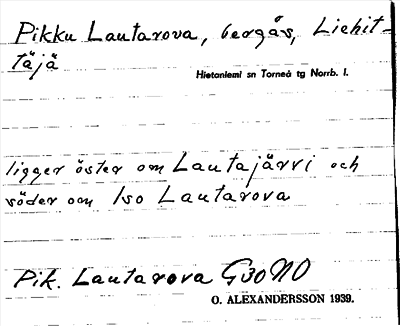 Pikku Lautarova, bergås, Liehit-
täjä
Hietaniemi sn Torneå tg Norrb. l.
ligger öster om Lautajärvi och
söder om Iso Lautarova
Pik. Lautarova G30NO
O. ALEXANDERSSON 1939.